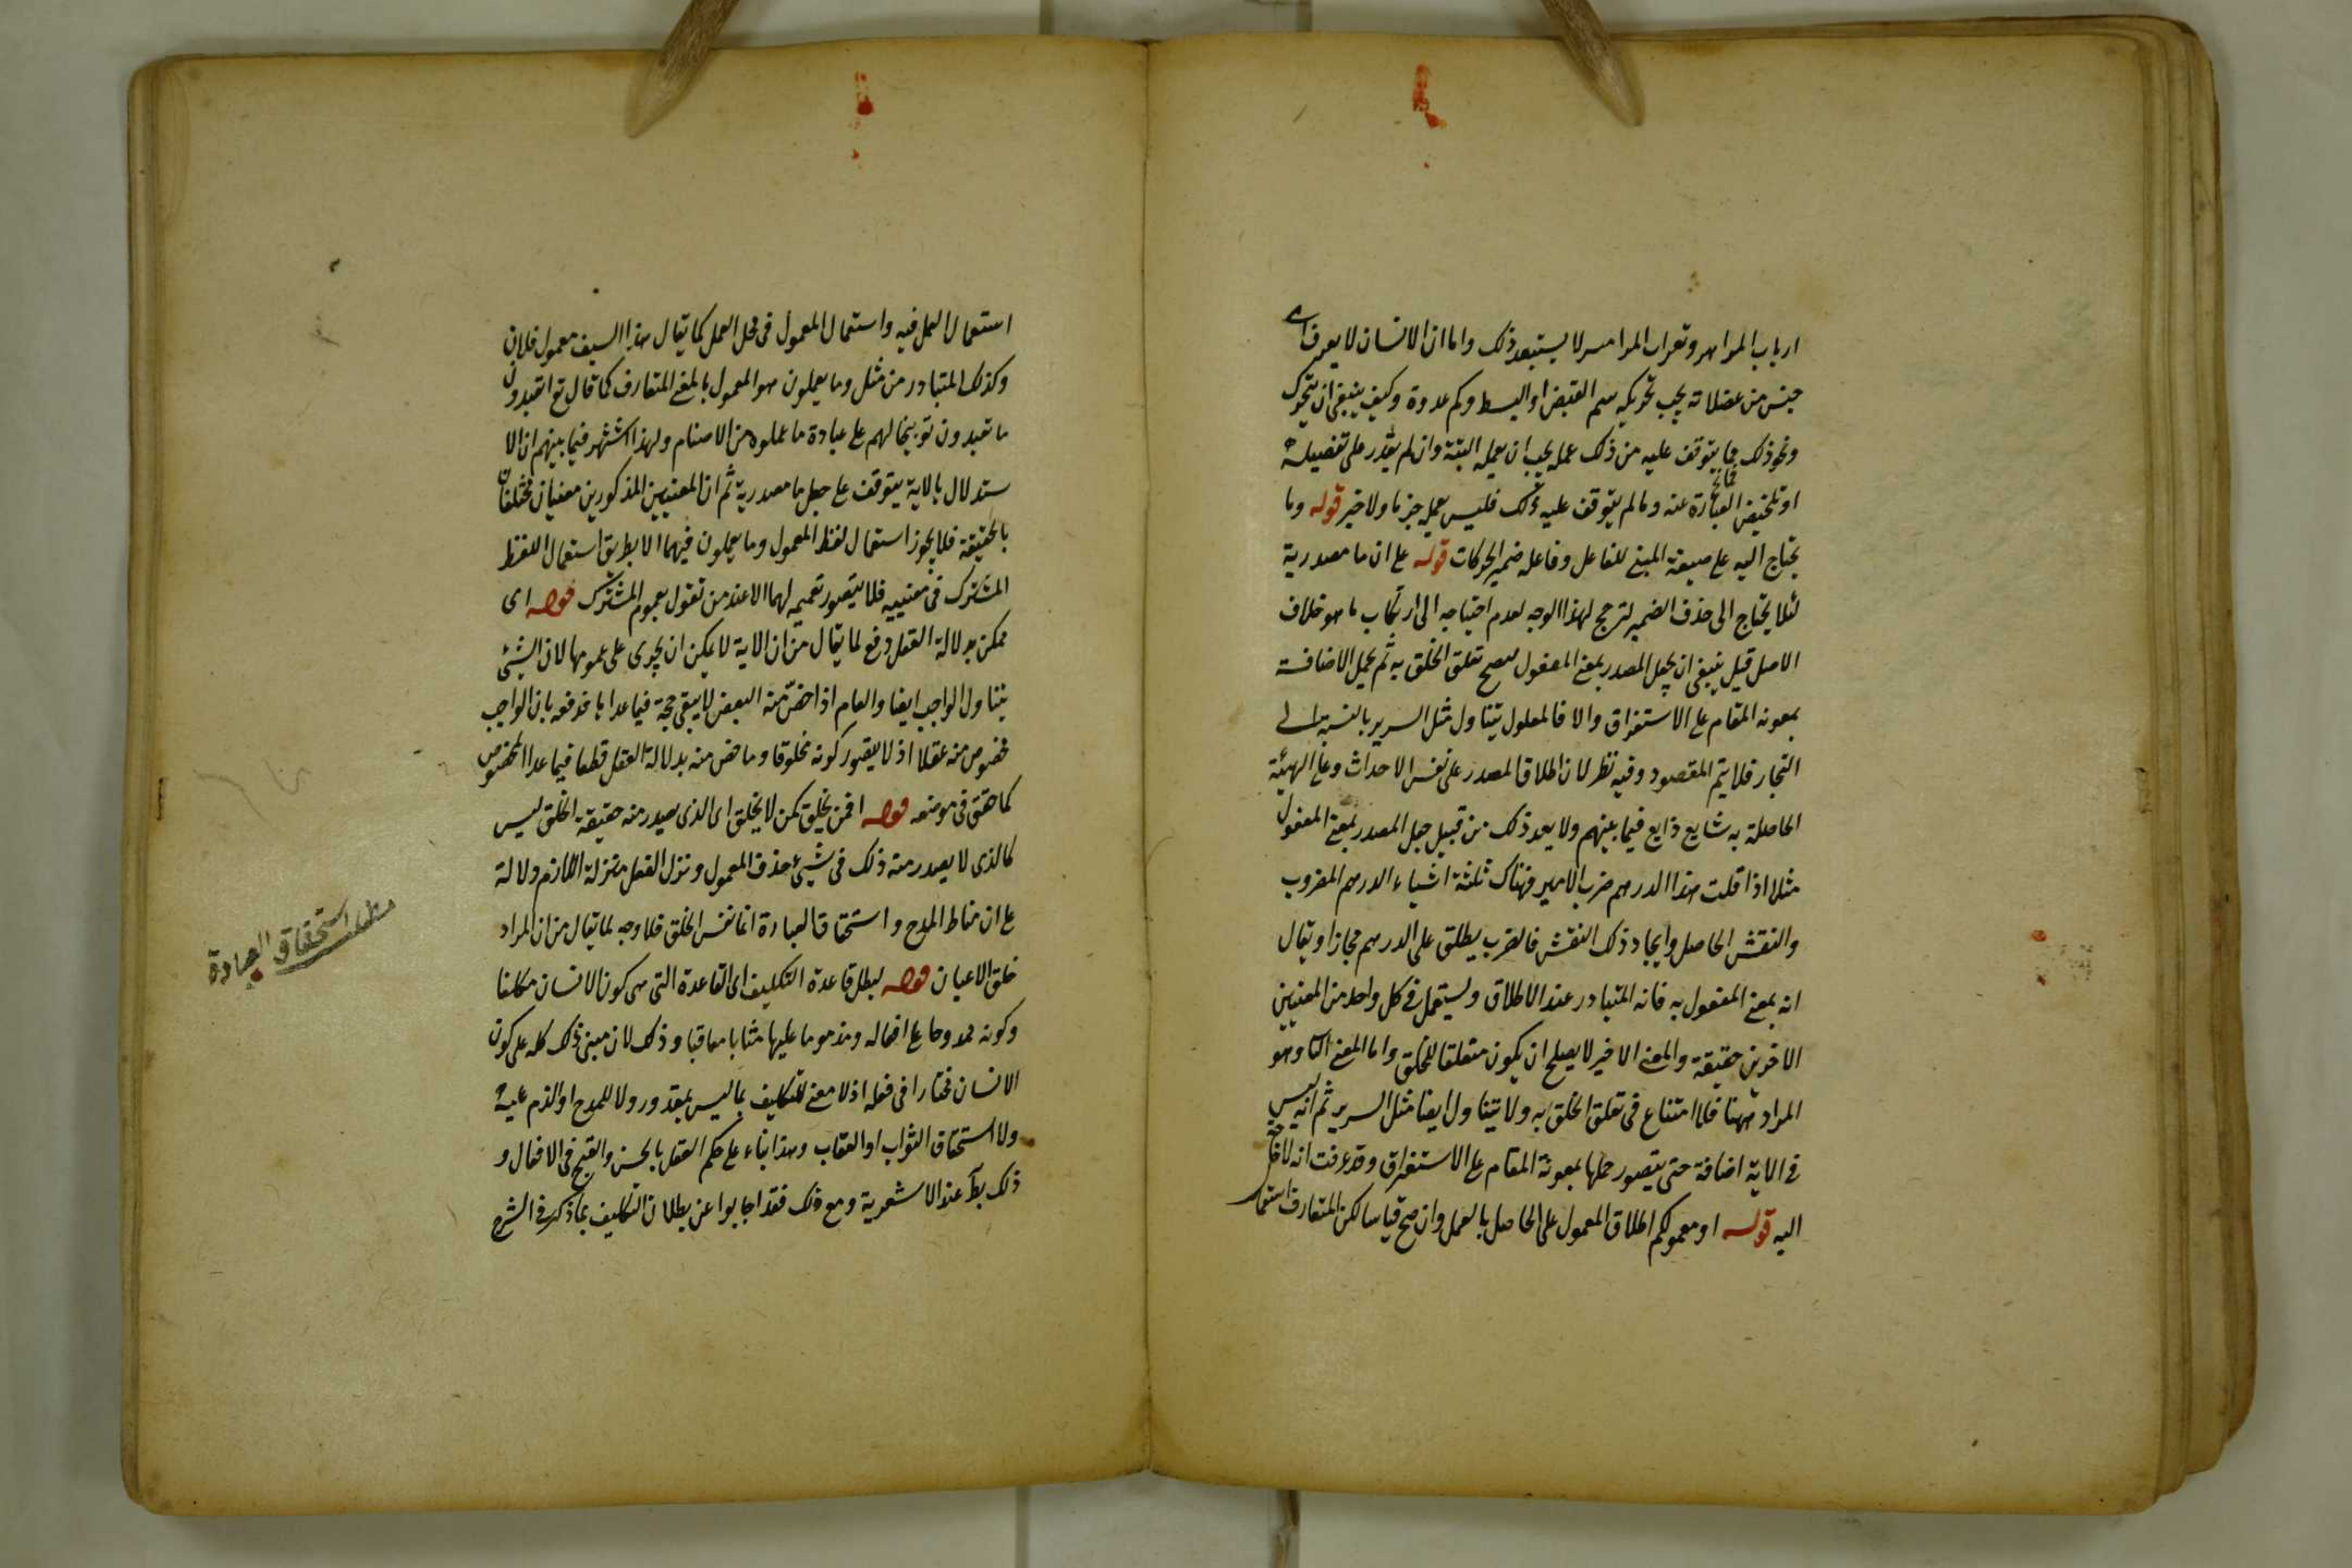 ارباب المزاهر ونقرات المزامير لا يستبعد ذلك واما ان الانسان لا يعرف اى
جنس من عضلاته يجب تحريكه سم القبض او البسط وكم عدده وكيف ينبغى ان يتحرك
ونحو ذلك فما يتوقف عليه من ذلك عمله يجب ان يعلمه البتة وان لم يقدر على تفصيله
او تلخيص العبارة عنه وما لم يتوقف عليه ذلك فليس بعمله جزما ولا خير قوله وما
يحتاج اليه على صيغة المبنى للفاعل وفاعله ضمير الحركات قوله على ان ما مصدرية
لئلا يحتاج الى حذف الضمير لترجح لهذا الوجه لعدم احتياجه الى ارتكاب ما هو خلاف
الاصل قيل ينبغى ان يجعل المصدر بمعنى المفعول ليصح تعلق الخلق به ثم يحمل الاضافة
بمعونة المقام على الاستغراق والا فالمعلول يتناول مثل السرير بالنسبة الى
النجار فلا يتم المقصود وفيه نظر لان اطلاق المصدر على نفس الاحداث وعلى الهيئة
الحاصلة به شايع ذايع فيما بينهم ولا يعد ذلك من قبيل جعل المصدر بمعنى المفعول
مثلا اذا قلت هذا الدرهم ضرب الامير فهناك ثلثة اشياء الدرهم المضروب
والنقش الحاصل وايجاد ذلك النقش فالضرب يطلق على الدرهم مجازا ويقال
انه بمعنى المفعول به فانه المتبادر عند الاطلاق ويستعمل فى كل واحد من المعنيين
الاخرين حقيقة والمعنى الاخير لا يصلح ان يكون متعلقا للخلق واما المعنى الثا وهو
المراد ههنا فلا امتناع فى تعلق الخلق به ولا يتناول ايضا مثل السرير ثم انه ليس
فى الاية اضافة حتى يتصور حملها بمعونة المقام على الاستغراق وقد عرفت انه لا حاجة
اليه قوله او معمولكم اطلاق المعمول على الحاصل بالعمل وان صح قياسا لكن المتعارف استعمال
استعمال العمل فيه واستعمال المعمول فى محل العمل كما يقال هذا السيف معمول فلان
وكذلك المتبادر من مثل وما يعملون هو المعمول بالمعنى المتعارف كما قال تع اتعبدون
ما تعبدون توبيخا لهم على عبادة ما عملوه من الاصنام ولهذا اشتهر فيما بينهم ان الا
ستدلال بالاية يتوقف على جعل ما مصدرية ثم ان المعنيين المذكورين معنيان مختلفان
بالحقيقة فلا يجوز استعمال لفظ المعمول وما يعملون فيهما الا بطريق استعمال اللفظ
المشترك فى معنييه فلا يتصور تعميمه لهما الا عند من تقول بعموم المشترك قوله اى
ممكن بدلالة العقل دفع لما يقال من ان الاية لا يمكن ان يجرى على عمومها لان الشئ
يتناول الواجب ايضا والعام اذا خصّ منه البعض لا يبقى حجة فيما عدا با خدفعه بان الواجب
مخصوص منه عقلا اذ لا يتصور كونه مخلوقا وما خص منه بدلالة العقل قطعا فيما عدا المخصوص
كما حقق فى موضعه قوله افمن يخلق كمن لا يخلق اى الذى يصدر منه حقيقة الخلق ليس
كالذى لا يصدر منه ذلك فى شئ حذف المعمول ونزل الفعل منزلة اللازم دلالة
على ان مناط المدح واستحقاق العبادة انما نفس الخلق فلا وجه لما يقال من ان المراد
خلق الاعيان قوله لبطل قاعدة التكليف اى القاعدة التى هى كون الانسان مكلفا
وكونه ممدوحا على افعاله ومذموما عليها مثابا معاقبا وذلك لان مبنى ذلك كله على كون
الانسان مختارا فى فعله اذ لا معنى للتكليف بما ليس بمقدور ولا للمدح او الذم عليه
ولا استحقاق الثواب او العقاب وهذا بناء على حكم العقل بالحسن والقبح فى الافعال و
ذلك بط عند الاشعرية ومع ذلك فقد اجابوا عن بطلان التكليف بما ذكر فى الشرح
مطلب استحقاق العبادة